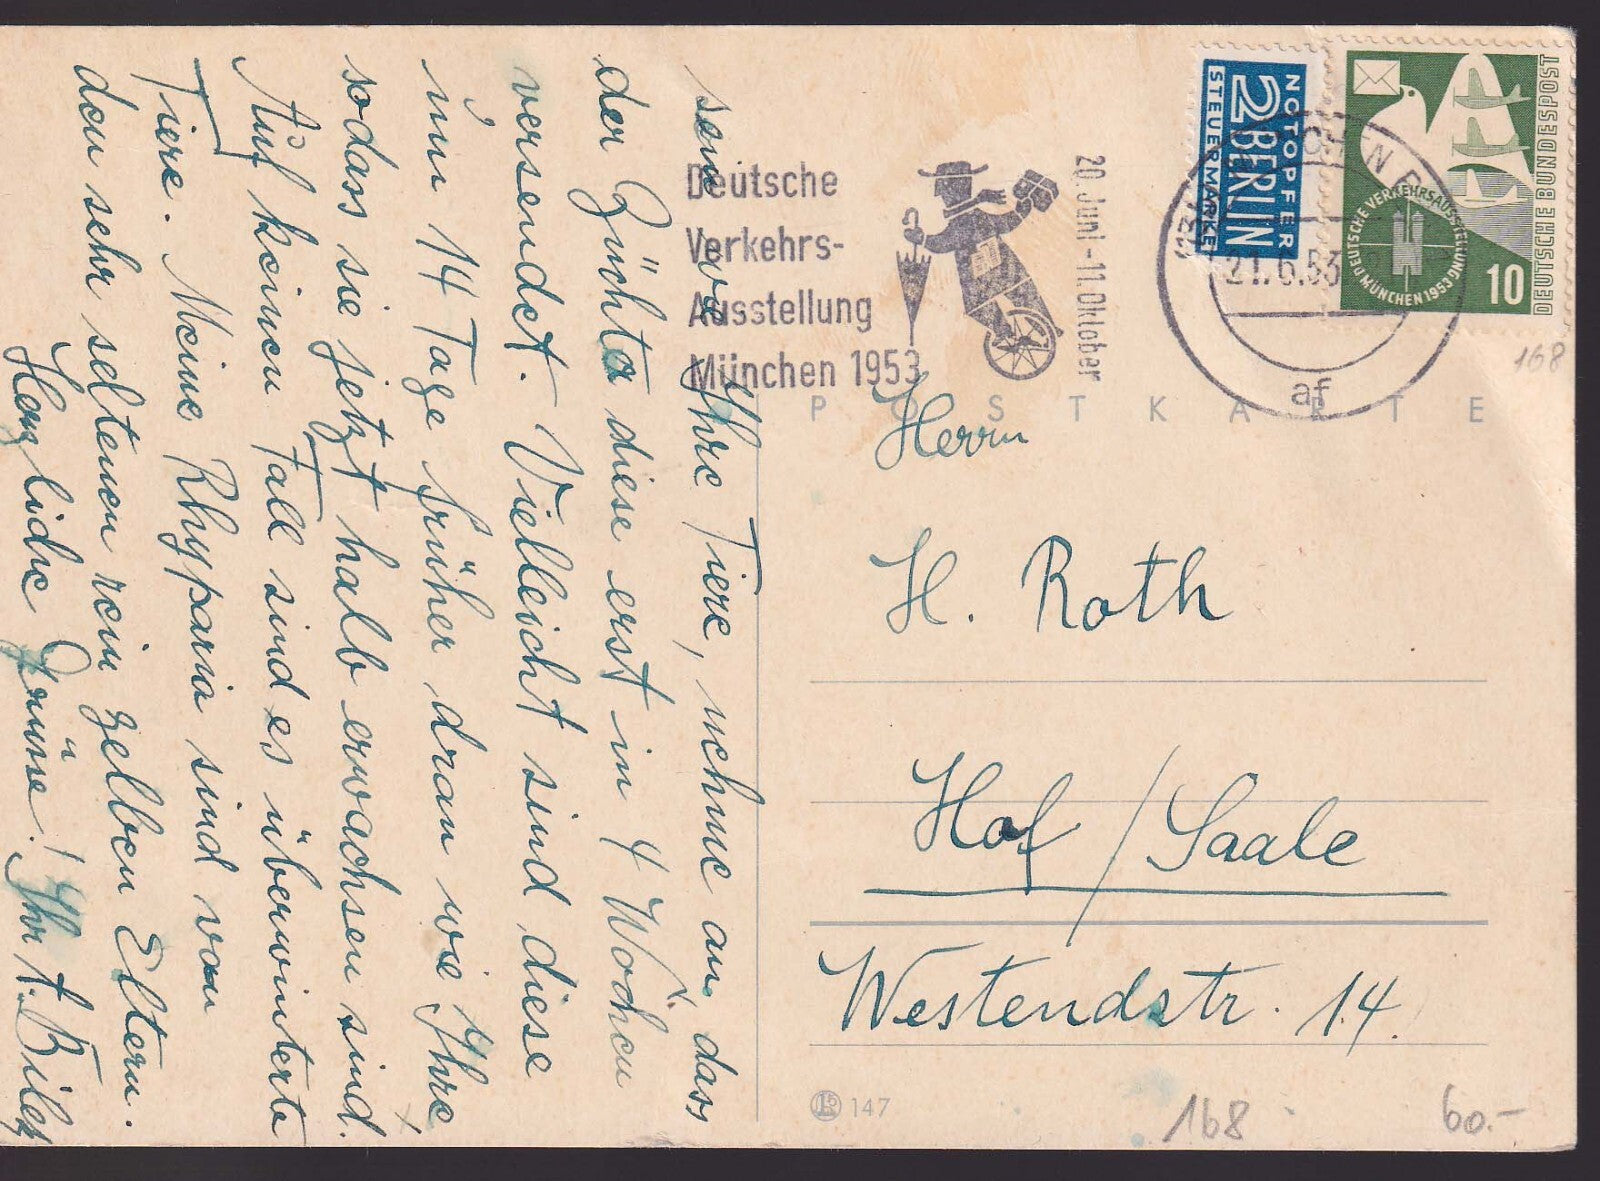 sen wie Ihre Tiere, nehme an, dass
der Züchter diese erst in 4 Wochen
versendet. Vielleicht sind diese
um 14 Tage früher dran wie Ihre
sodass sie jetzt halb erwachsen sind.
Auf keinen Fall sind es überwinterte
Tiere. Meine Rhyparia sind von
den sehr seltenen rein gelben Eltern.
Herzliche Grüsse! Ihr
Deutsche
Verkehrs-
Ausstellung
München 1953
20. Juni - 11. Oktober
NOTOPFER
2 BERLIN
STEUERMARKE
21.6.53
af
DEUTSCHE VERKEHRSAUSSTELLUNG
MÜNCHEN 1953
10
DEUTSCHE BUNDESPOST
168
POSTKARTE
Herrn
H. Roth
Hof / Saale
Westendstr. 14.
147
168
60.-